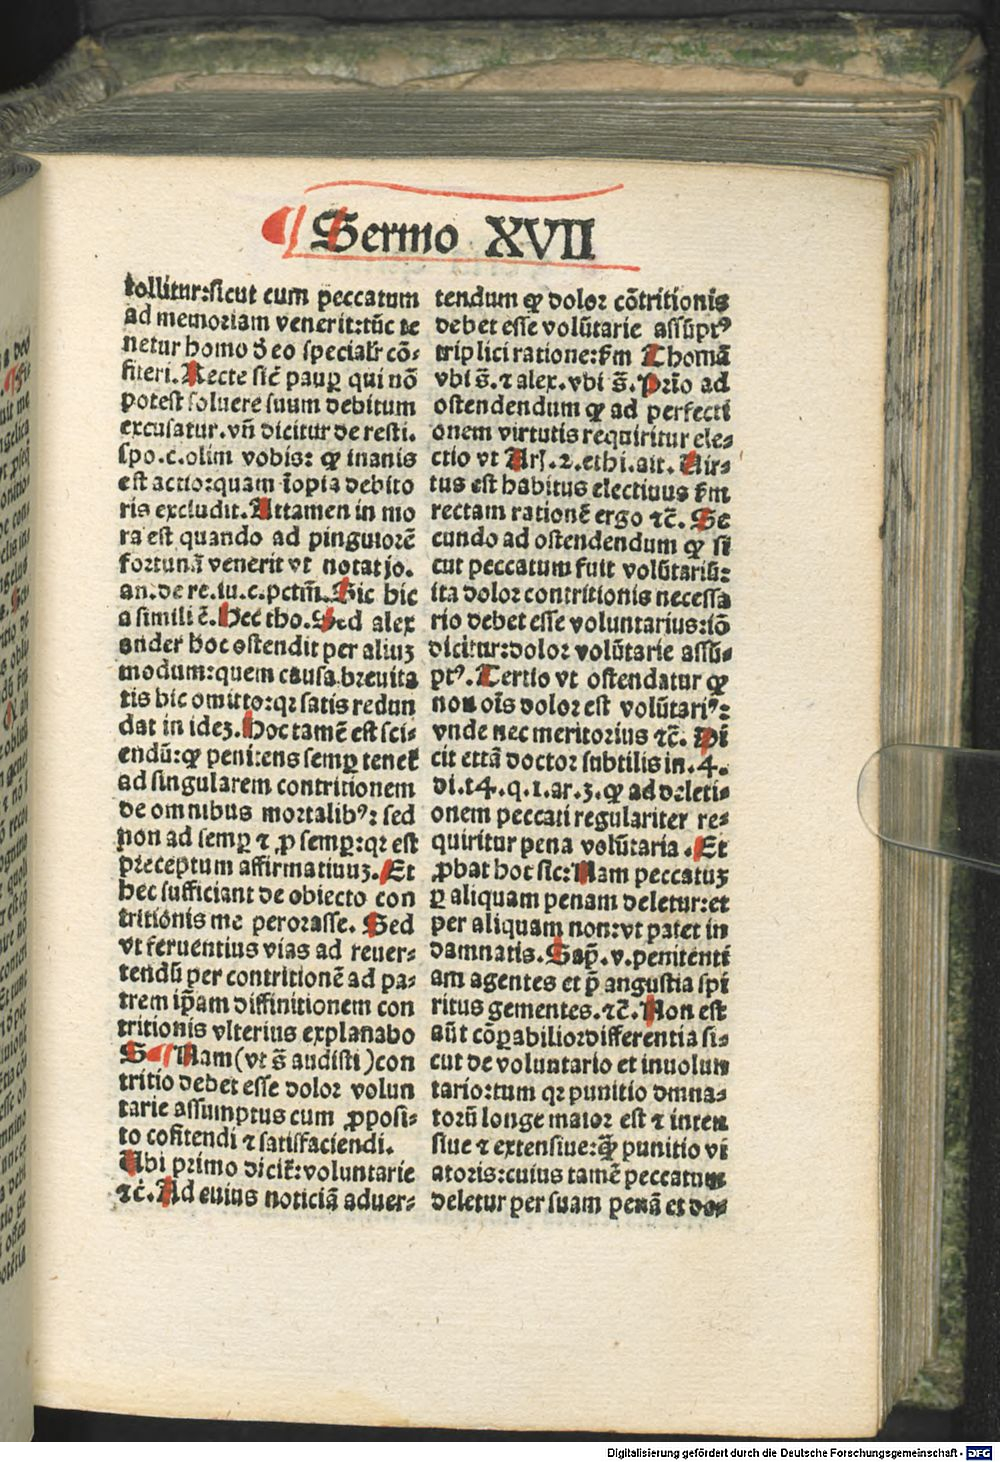 Sermo XVII
tollitur:sicut cum peccatum
ad memoriam venerit:tūc te
netur homo ꝺ eo specialr̄ cō-
fiteri. Recte sic̄ paup̲ qui nō
potest soluere suum debitum
excusatur.vn̄ dicitur de resti.
spo.c.olim vobis: ꝙ inanis
est actio:quam īopia debito
ris excludit. Attamen in mo
ra est quando ad pinguiorē
fortunā venerit vt notat jo.
an.de re.iu.c.pctm̄. Sic hic
a simili ē. Hec tho. Sed alex
ander hoc ostendit per aliuʒ
modum:quem causa breuita
tis hic omitto:qꝛ satis redun
dat in ideʒ. Hoc tamē est sci-
endū:ꝙ penitens semp̲ teneť
ad singularem contritionem
de omnibus mortalibꝰ: sed
non ad semp̲ ⁊ ꝓ semp̲:qꝛ est
preceptum affirmatiuuʒ. Et
hec sufficiant de obiecto con
tritionis me perorasse. Sed
vt feruentius vias ad reuer-
tendū per contritionē ad pa-
trem ip̄am diffinitionem con
tritionis vlterius explanabo
S Nam (vt s̄ audisti) con
tritio debet esse dolor volun
tarie assumptus cum ꝓposi-
to cōfitendi ⁊ satisfaciendi.
Ubi primo diciť:voluntarie
⁊c̄. Ad cuius noticiā aduer-
tendum ꝙ dolor cōtritionis
debet esse volūtarie assūptꝰ
triplici ratione:ẜm Thomā
vbi s̄. ⁊ alex. vbi s̄. Prīo ad
ostendendum ꝙ ad perfecti
onem virtutis requiritur ele-
ctio vt Arẜ.2.ethi.ait. Vir-
tus est habitus electiuus ẜm
rectam rationē ergo ⁊c̄. Se
cundo ad ostendendum ꝙ si
cut peccatum fuit volūtariū:
ita dolor contritionis necessa
rio debet esse voluntarius:iō
dicitur:dolor volūtarie assū-
ptꝰ. Tertio vt ostendatur ꝙ
non oīs dolor est volūtariꝰ:
vnde nec meritorius ⁊c̄. Di
cit etiā doctor subtilis in.4.
di.14.q.1.ar.3.ꝙ ad deleti-
onem peccati regulariter re-
quiritur pena volūtaria. Et
ꝓbat hoc sic: Nam peccatuʒ
p̲ aliquam penam deletur:et
per aliquam non:vt patet in
damnatis. Sap̄.v.penitenti
am agentes et p̄ angustia spi
ritus gementes.⁊c̄. Non est
aūt cōp̲abilior differentia si-
cut de voluntario et inuolun
tario:tum qꝛ punitio dmna-
torū longe maior est ⁊ inten
siue ⁊ extensiue:q̄ꝫ punitio vi
atoris:cuius tamē peccatum
deletur per suam penā et do-
Digitalisierung gefördert durch die Deutsche Forschungsgemeinschaft - DFG